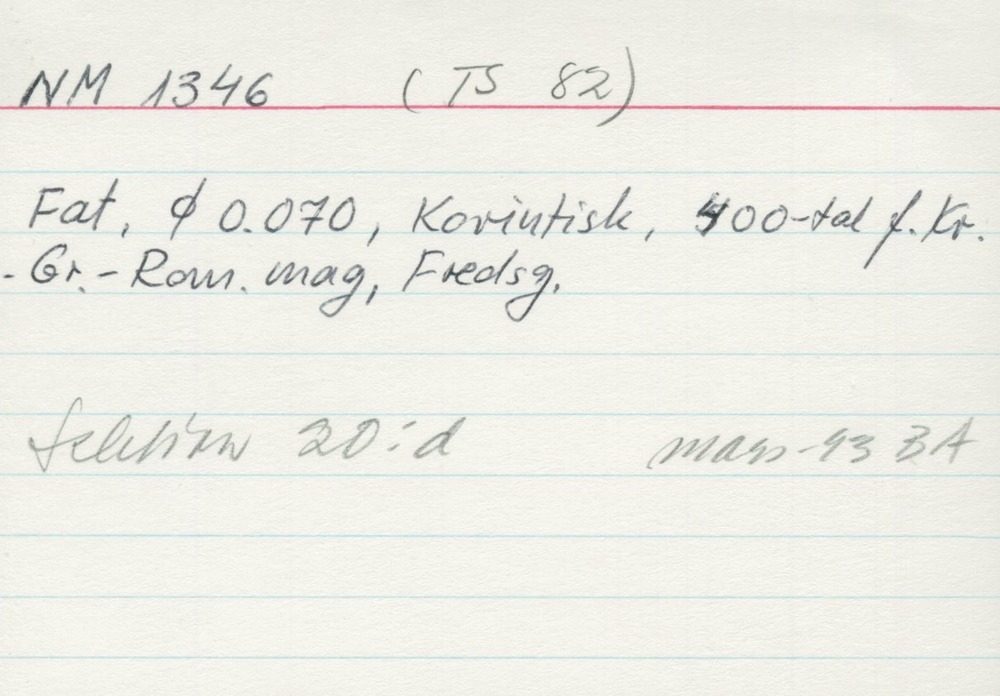 NM 1346 (TS 82)
Fat, ¢ 0.070, Korintisk, 400-tal f. Kr.
- Gr.- Rom. mag, Fredsg.
Sektion 20:d mars-93 BA